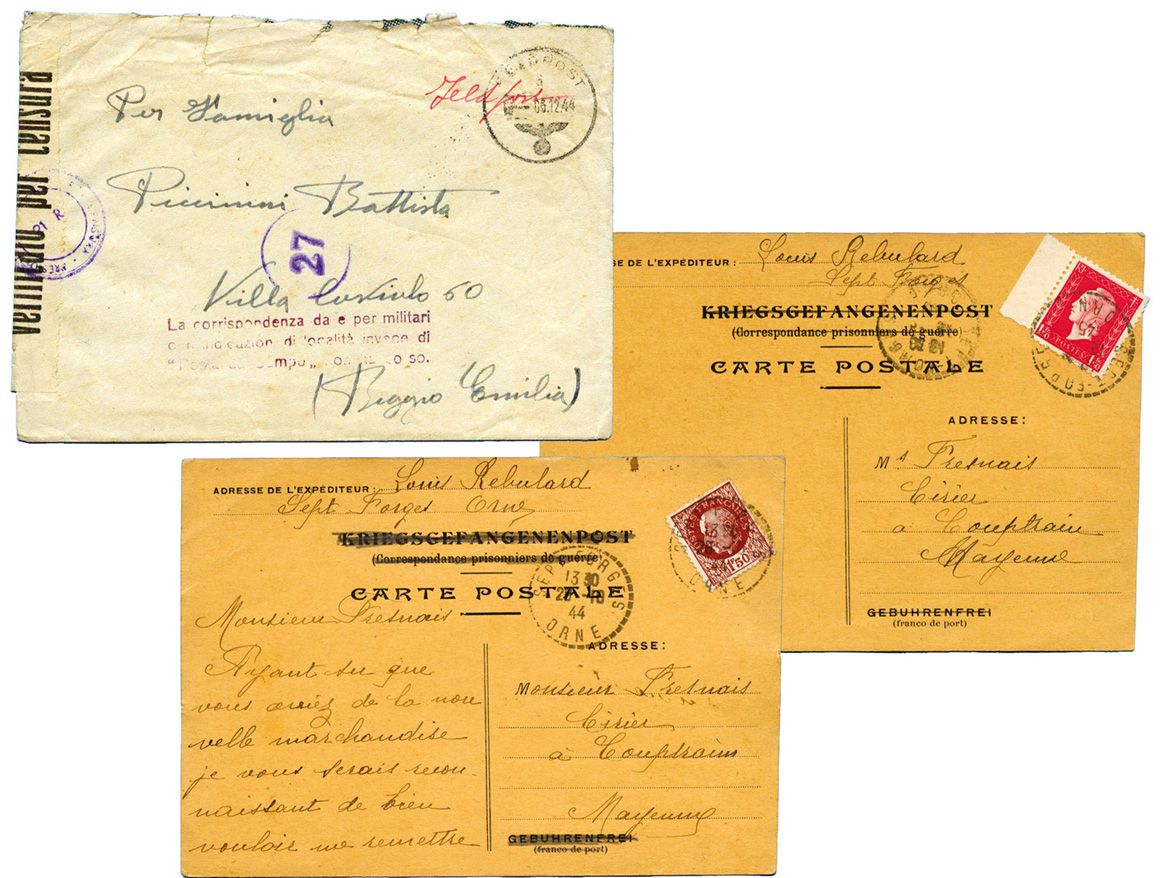 Verificato per censura
Per Famiglia
Feldpost
FELDPOST
06.12.44
Piccinini Battista
27
Villa 60
La corrispondenza da e per militari
con indicazioni di località invece di
"Posta da Campo" non ha corso.
(Reggio Emilia)
SE DE L'EXPÉDITEUR: Louis Rebulard
Sept Forges
KRIEGSGEFANGENENPOST
(Correspondance prisonniers de guerre)
CARTE POSTALE
RF
POSTES
ADRESSE:
Mr Fresnais
Cirier
à Couptrain
Mayenne
GEBUHRENFREI
(franco de port)
ADRESSE DE L'EXPÉDITEUR: Louis Rebulard
Sept Forges Orne
KRIEGSGEFANGENENPOST
(Correspondance prisonniers de guerre)
CARTE POSTALE
POSTES FRANÇAISES
1F50
SEPT-FORGES
13 30
44
ORNE
ORNE
Monsieur Fresnais
Ayant su que
vous aviez de la nou
velle marchandise
je vous serais recon-
naissant de bien
vouloir me remettre
ADRESSE:
Monsieur Fresnais
Cirier
à Couptrain
Mayenne
GEBUHRENFREI
(franco de port)